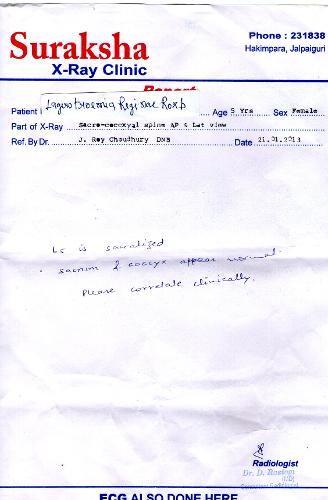 Suraksha
X-Ray Clinic
Phone : 231838
Hakimpara, Jalpaiguri
Report
Patient Lagerstroemia Reginae Roxb Age 5 Yrs Sex Female
Part of X-Ray Sacro-coccxyal spine AP & Lat view
Ref. By Dr. J. Roy Choudhury DNB Date 21.01.2013
L5 is sacralized
sacrum & coccyx appear normal.
Please correlate clinically.
Radiologist
Dr. D.
(MD)
ECG ALSO DONE HERE